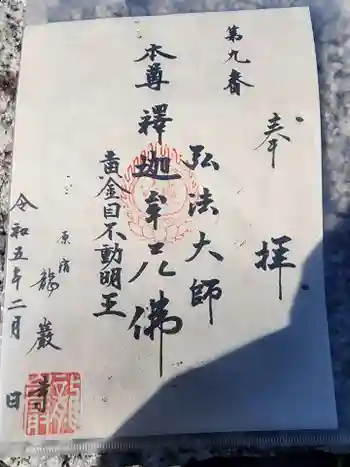 奉拝
第九番
弘法大師
本尊 釋迦牟尼佛
黄金目不動明王
原宿
龍巖寺
令和五年二月 日